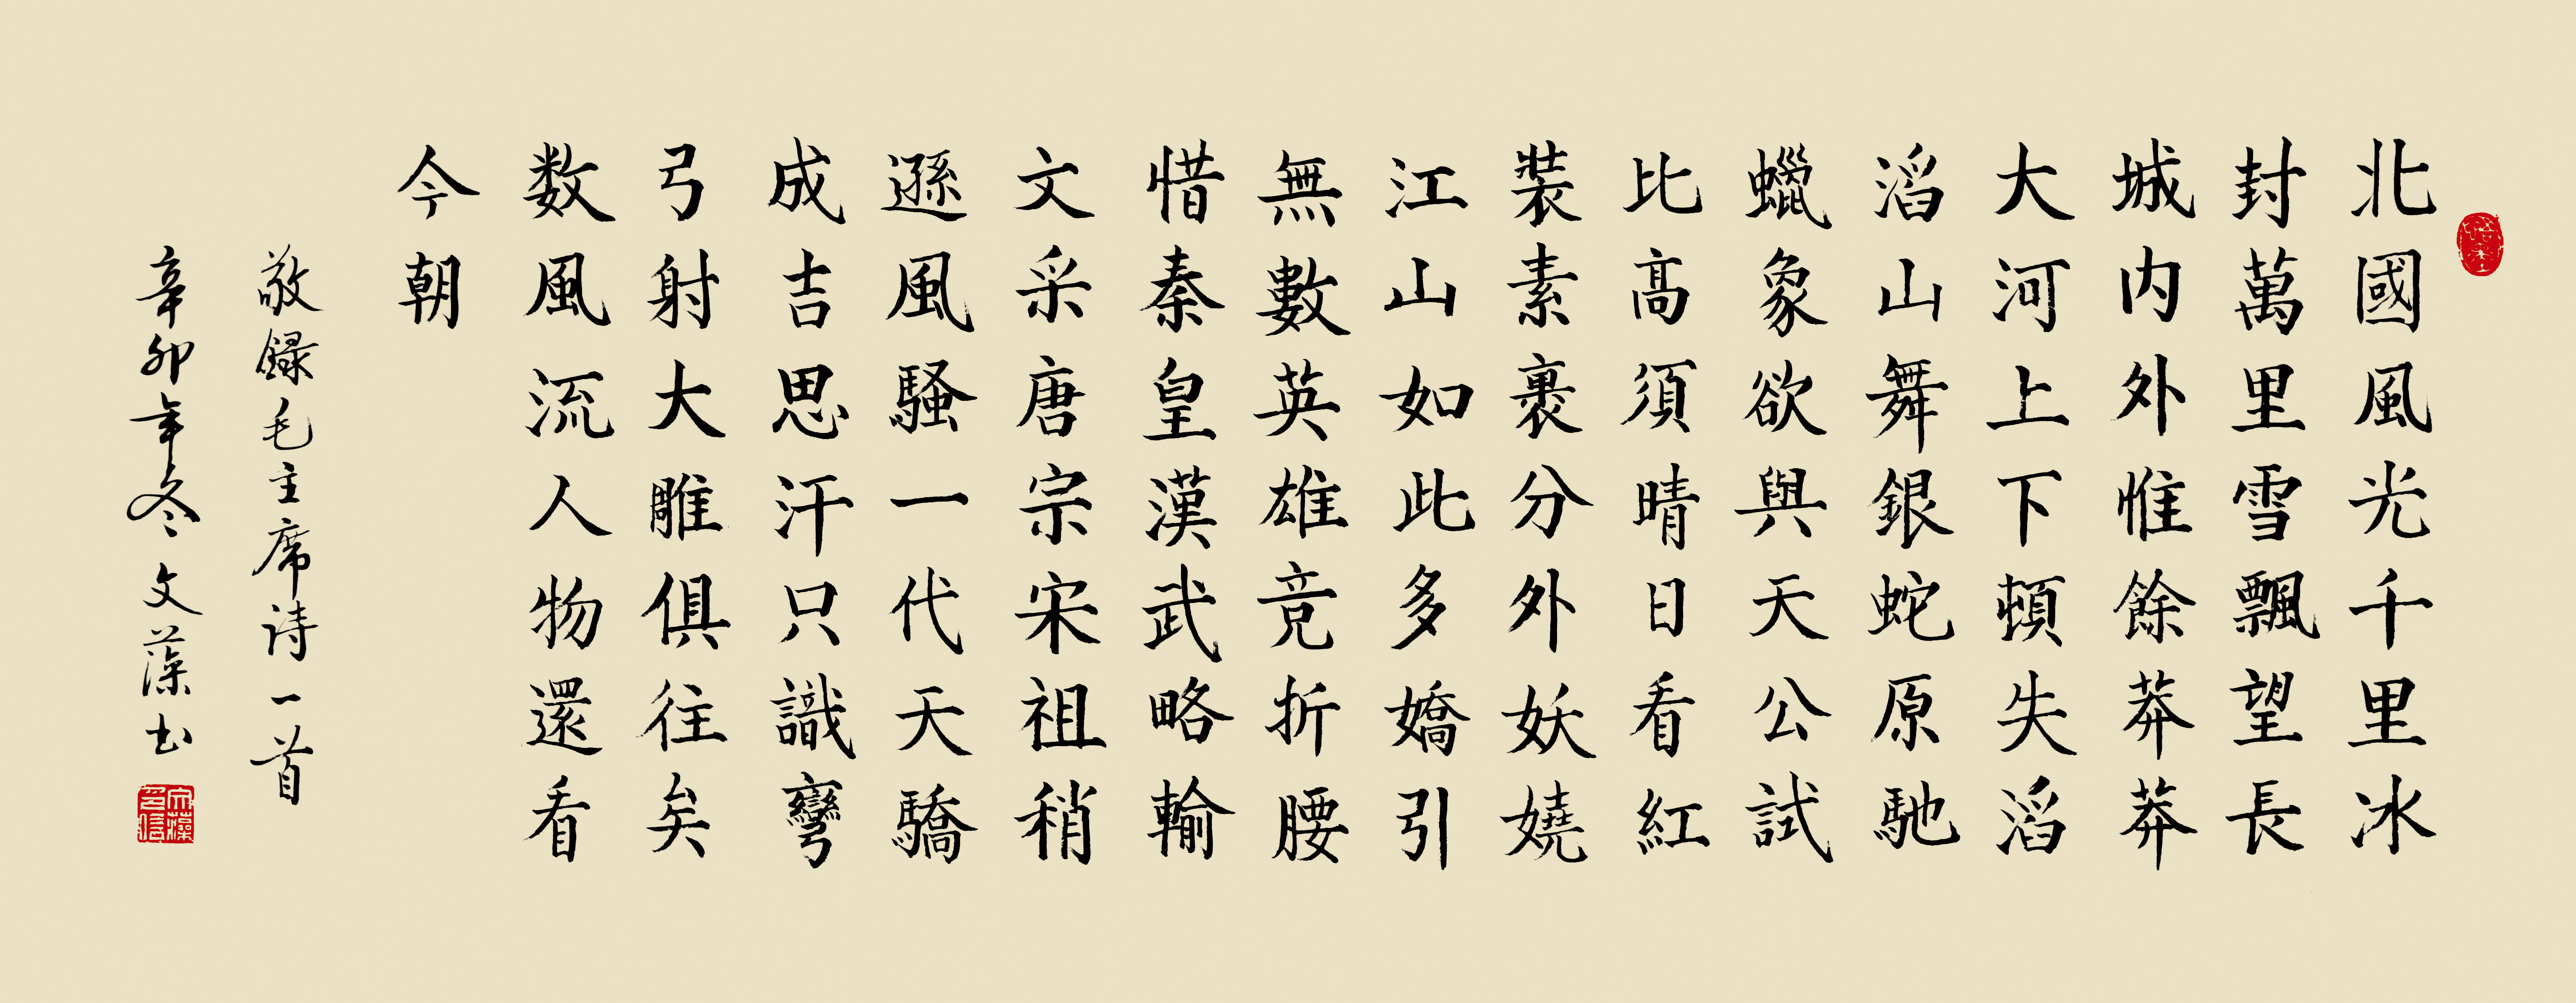 北國風光千里冰
封萬里雪飄望長
城内外惟餘莽莽
大河上下頓失滔
滔山舞銀蛇原馳
蠟象欲與天公試
比髙須晴日看紅
裝素裹分外妖嬈
江山如此多嬌引
無數英雄竞折腰
惜秦皇漢武略輸
文采唐宗宋祖稍
遜風騷一代天驕
成吉思汗只識彎
弓射大雕俱往矣
数風流人物還看
今朝
敬録毛主席诗一首
辛卯年冬文藻书